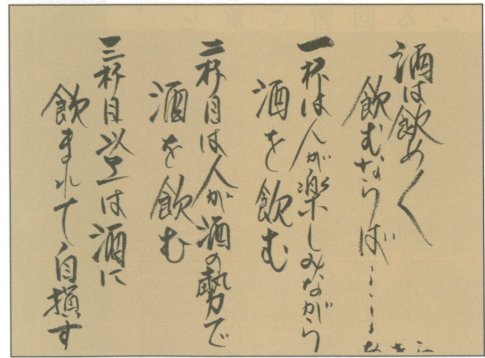 酒は飲め〱
飲むならば……
一杯は人が楽しみながら
酒を飲む
二杯目は人が酒の勢で
酒を飲む
三杯目以上は酒に
飲まれて自損す